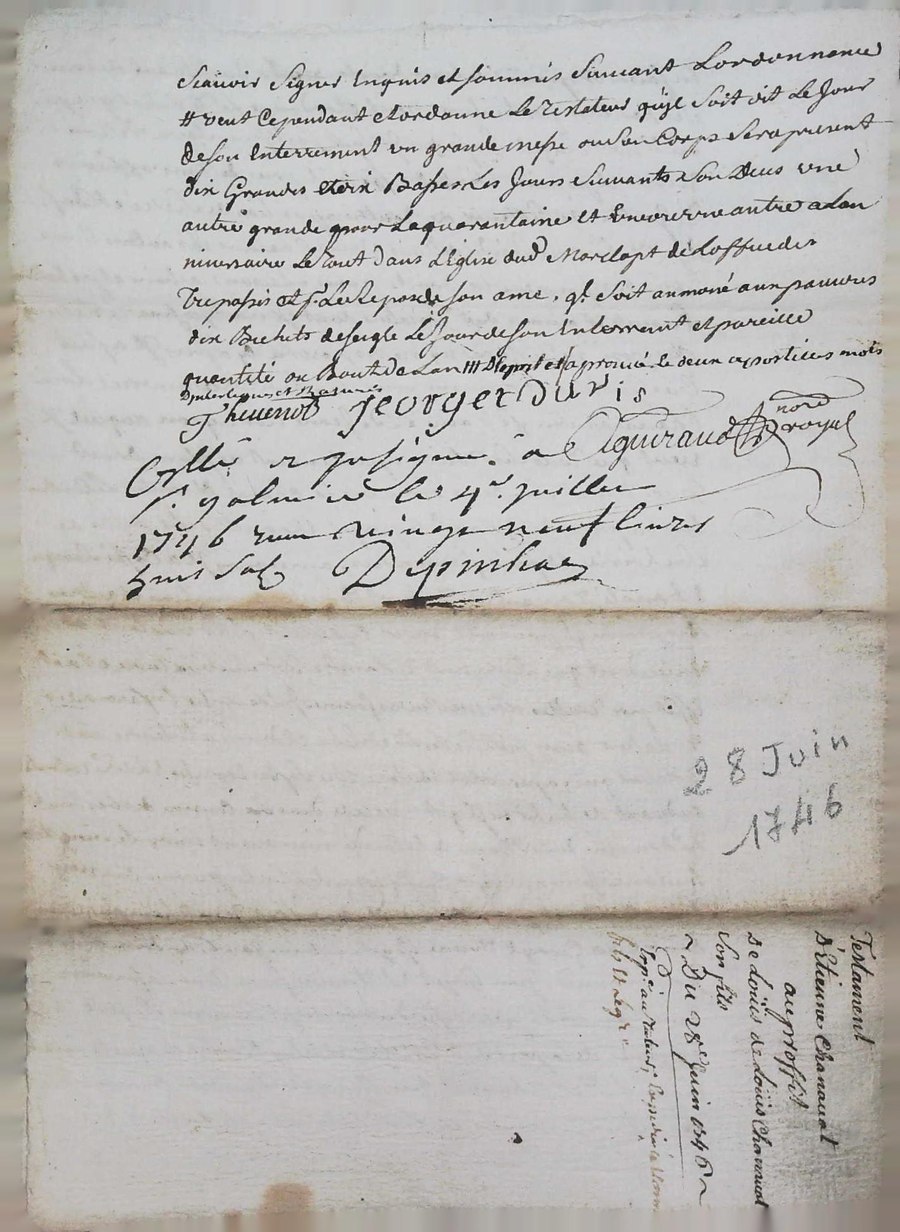 Scavoir Signer Enquis et sommés Suivant Lordonnance
# veut Cependant et ordonne Le Testateur qu'jl Soit dit Le Jour
de son Enterrement un grande messe ou Son Corps Sera present
dix Grandes et dix Basses Les Jours Suivants Son Deces une
autre grande pour La quarantaine Et Encore une autre a Lan
niversaire Le Tout Dans L'Eglise dud
Trepassés Et pr. Le Repos de son ame, qt. soit aumoné aux pauvres
dix Bichets de seigle Le Jour de son Enterrement et pareille
quantité au Boutz de Lan approuvé Le deux mots
Thevenot Jeorge Duris
Aguiraud nore royal
Collé a
St. galmier le 4e. Juillet
1746 vingt neuf livres
huit Sols
28 Juin
1746
Testament
D'Etienne Chanavat
au proffit
De Loüis de Loüis Chanavat
Son fils
Du 28e Juin 1746